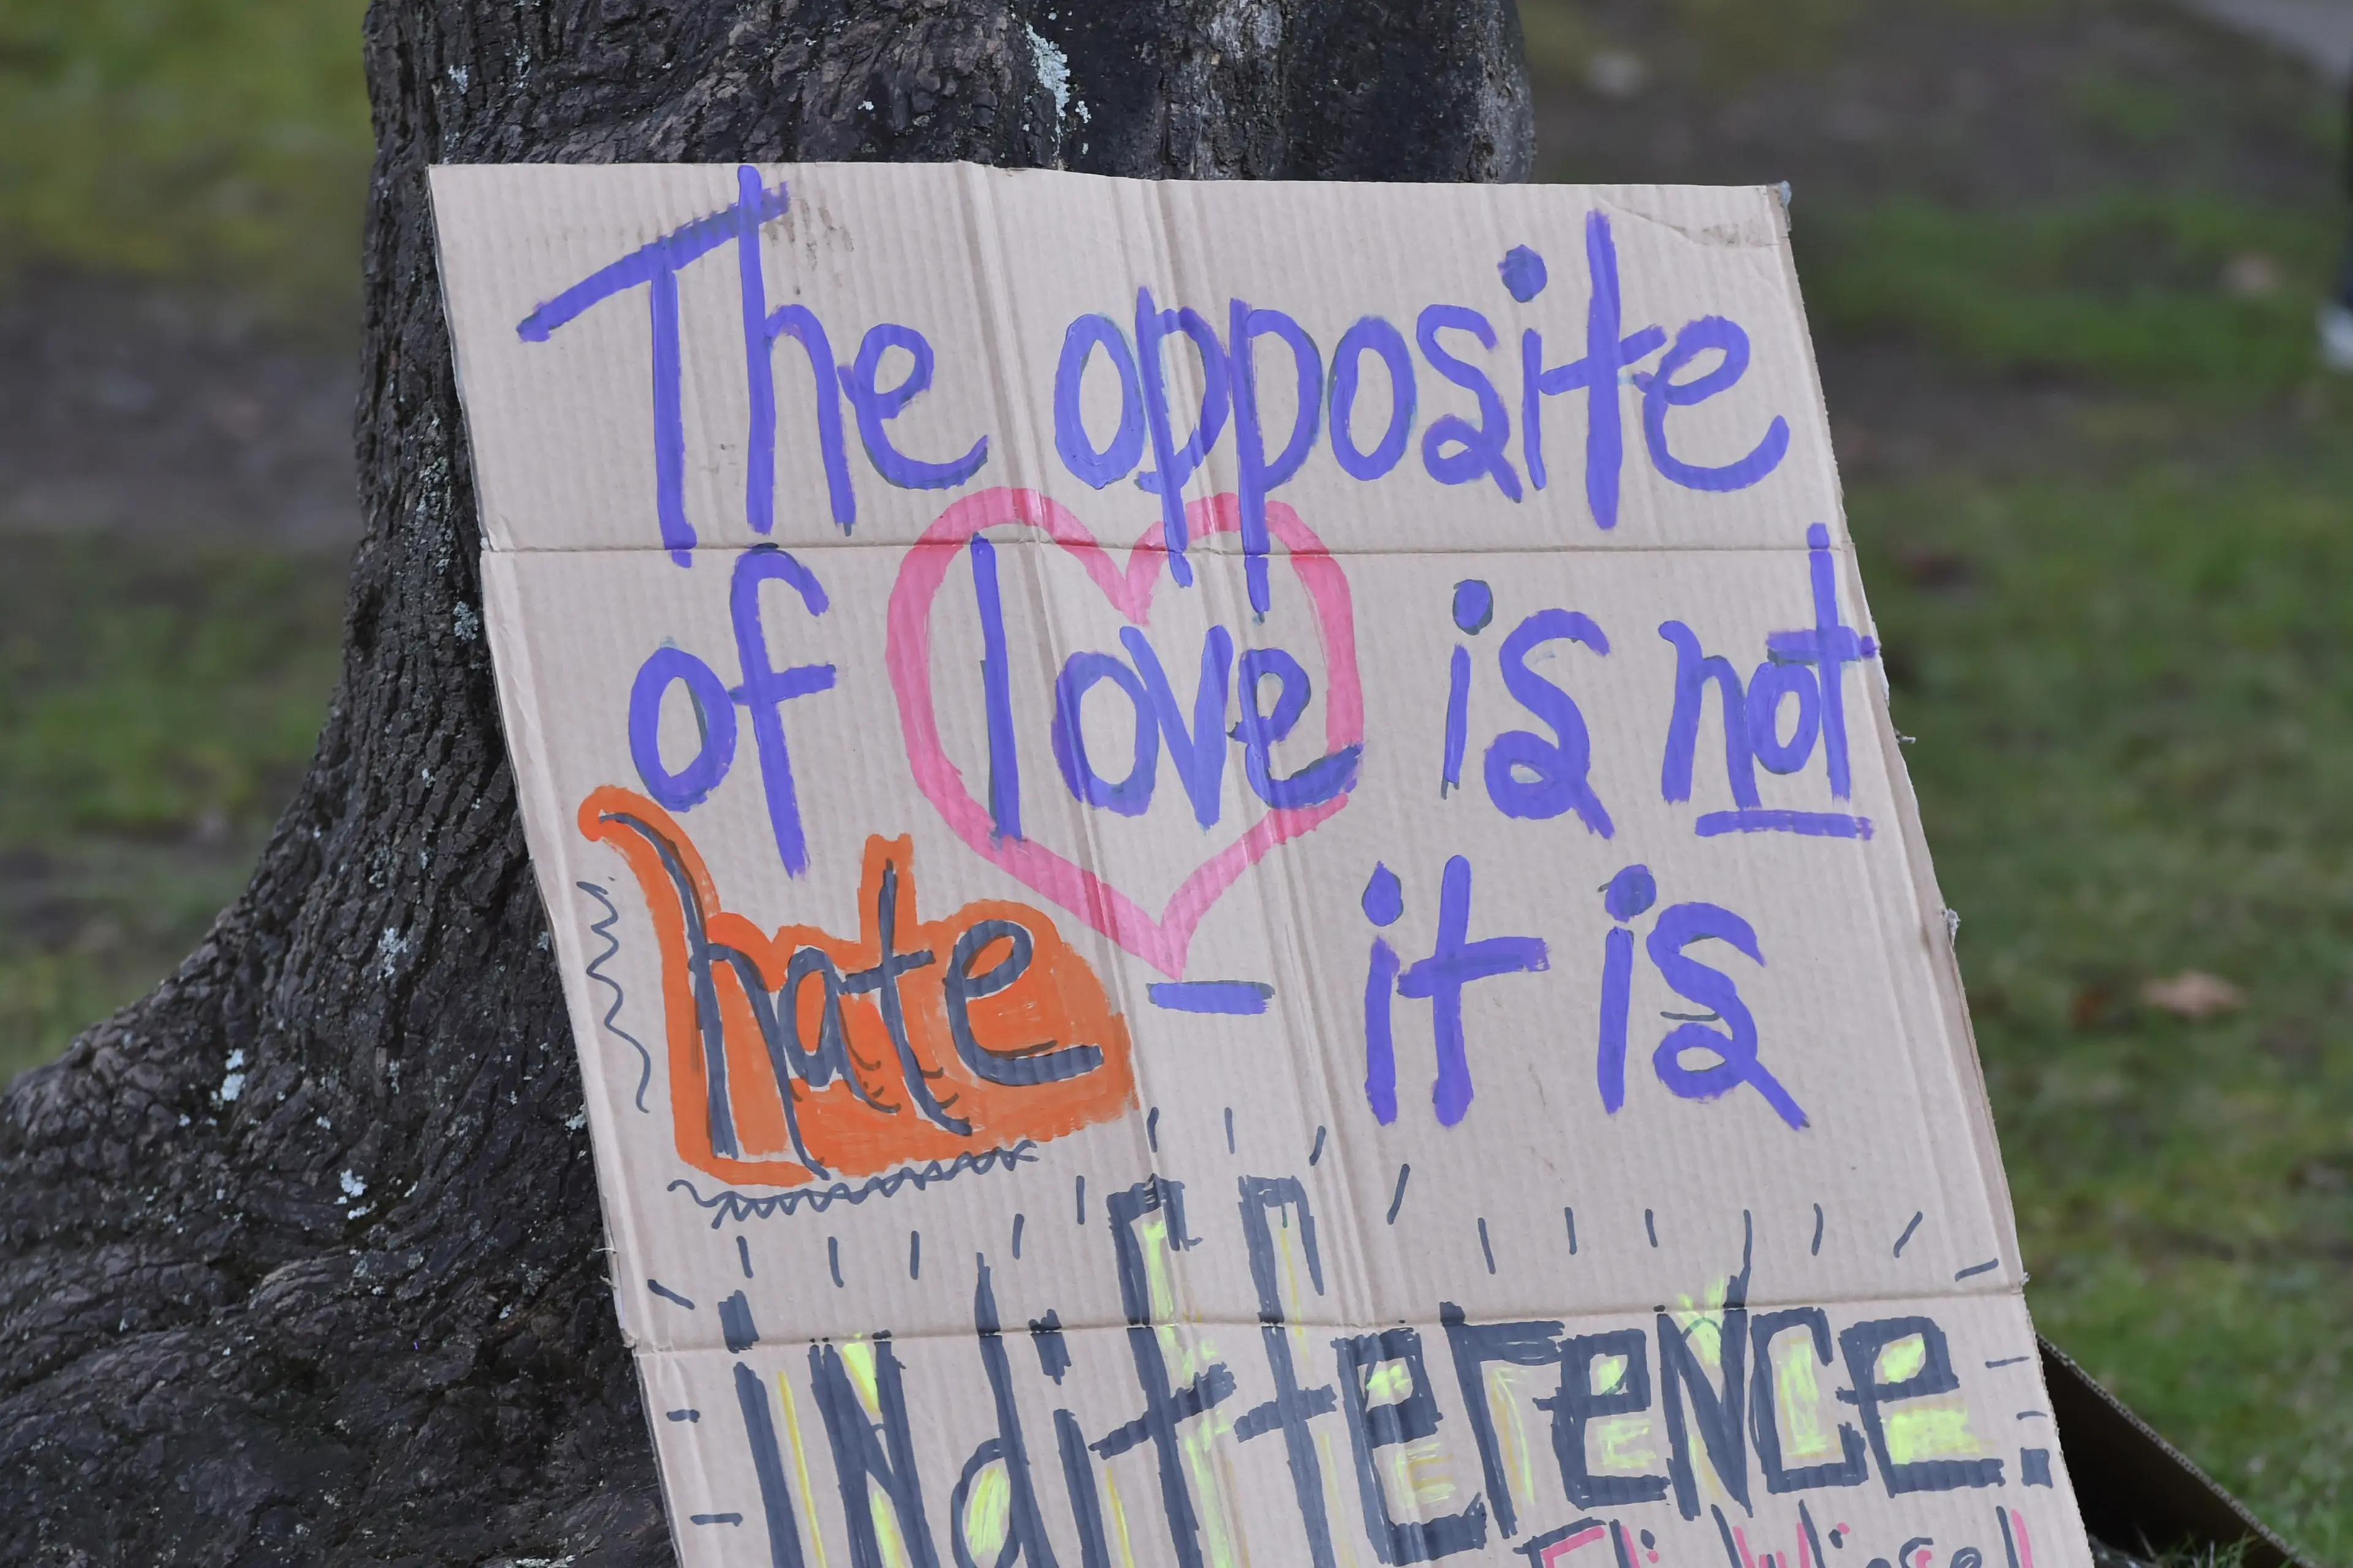 The opposite
of love is not
hate - it is
INdifference
Elie Wiesel